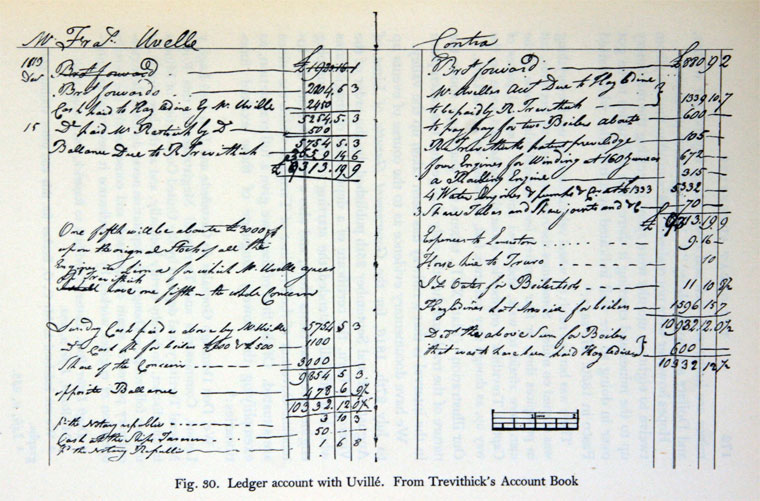 Mr Fras. Uvelle
1813
Decr
Brot forward £
Brot forward 2204. 5 3
Cash paid to Hazeldine by Mr Uville 2450
5254. 5. 3
15 Do paid Mr by Do 500
5754 5. 3
Ballance Due to R Trevithick
£ 9313. 19. 9
One fifth will be about £3000 of
upon the original Stock of all the
Engines in Lima for which Mr Uvelle agrees
Trevithick
have one fifth in the whole Concern
Sunday Cash paid as above by Mr Uville 5754 5 3
Do Cash for boilers £600 & £500 1100
Share of the Concern 3000
9854 5 3
opposite Ballance 478 6 9½
10332. 12 0½
pr the Notary republic 3 10 3
Cash at the Ships 50
pr the Notary Republic 1 6 8
Contra
Brot forward £880 9 2
Mr Uvelles acct Due to Hazeldine
to be paid by R Trevithick 1339 10. 7
to pay for two Boilers about 600
R Trevithick 105
four Engines for Winding at 160 Guineas 672
a Engine 315
4 Water Engines & pumps &c at £1333 5332
3 Share Tubes and Share joints and &c 70
£ 13. 19. 9
Expences to 9. 16
Horse hire to Truro 10
for Boiler 11 10
Hazeldines last for boilers 1596 15 7
10932 12. 0½
Dct the above Sum for Boilers
that was to have been paid Hazeldine 600
10332 12½
Fig. 30. Ledger account with Uvillé. From Trevithick's Account Book